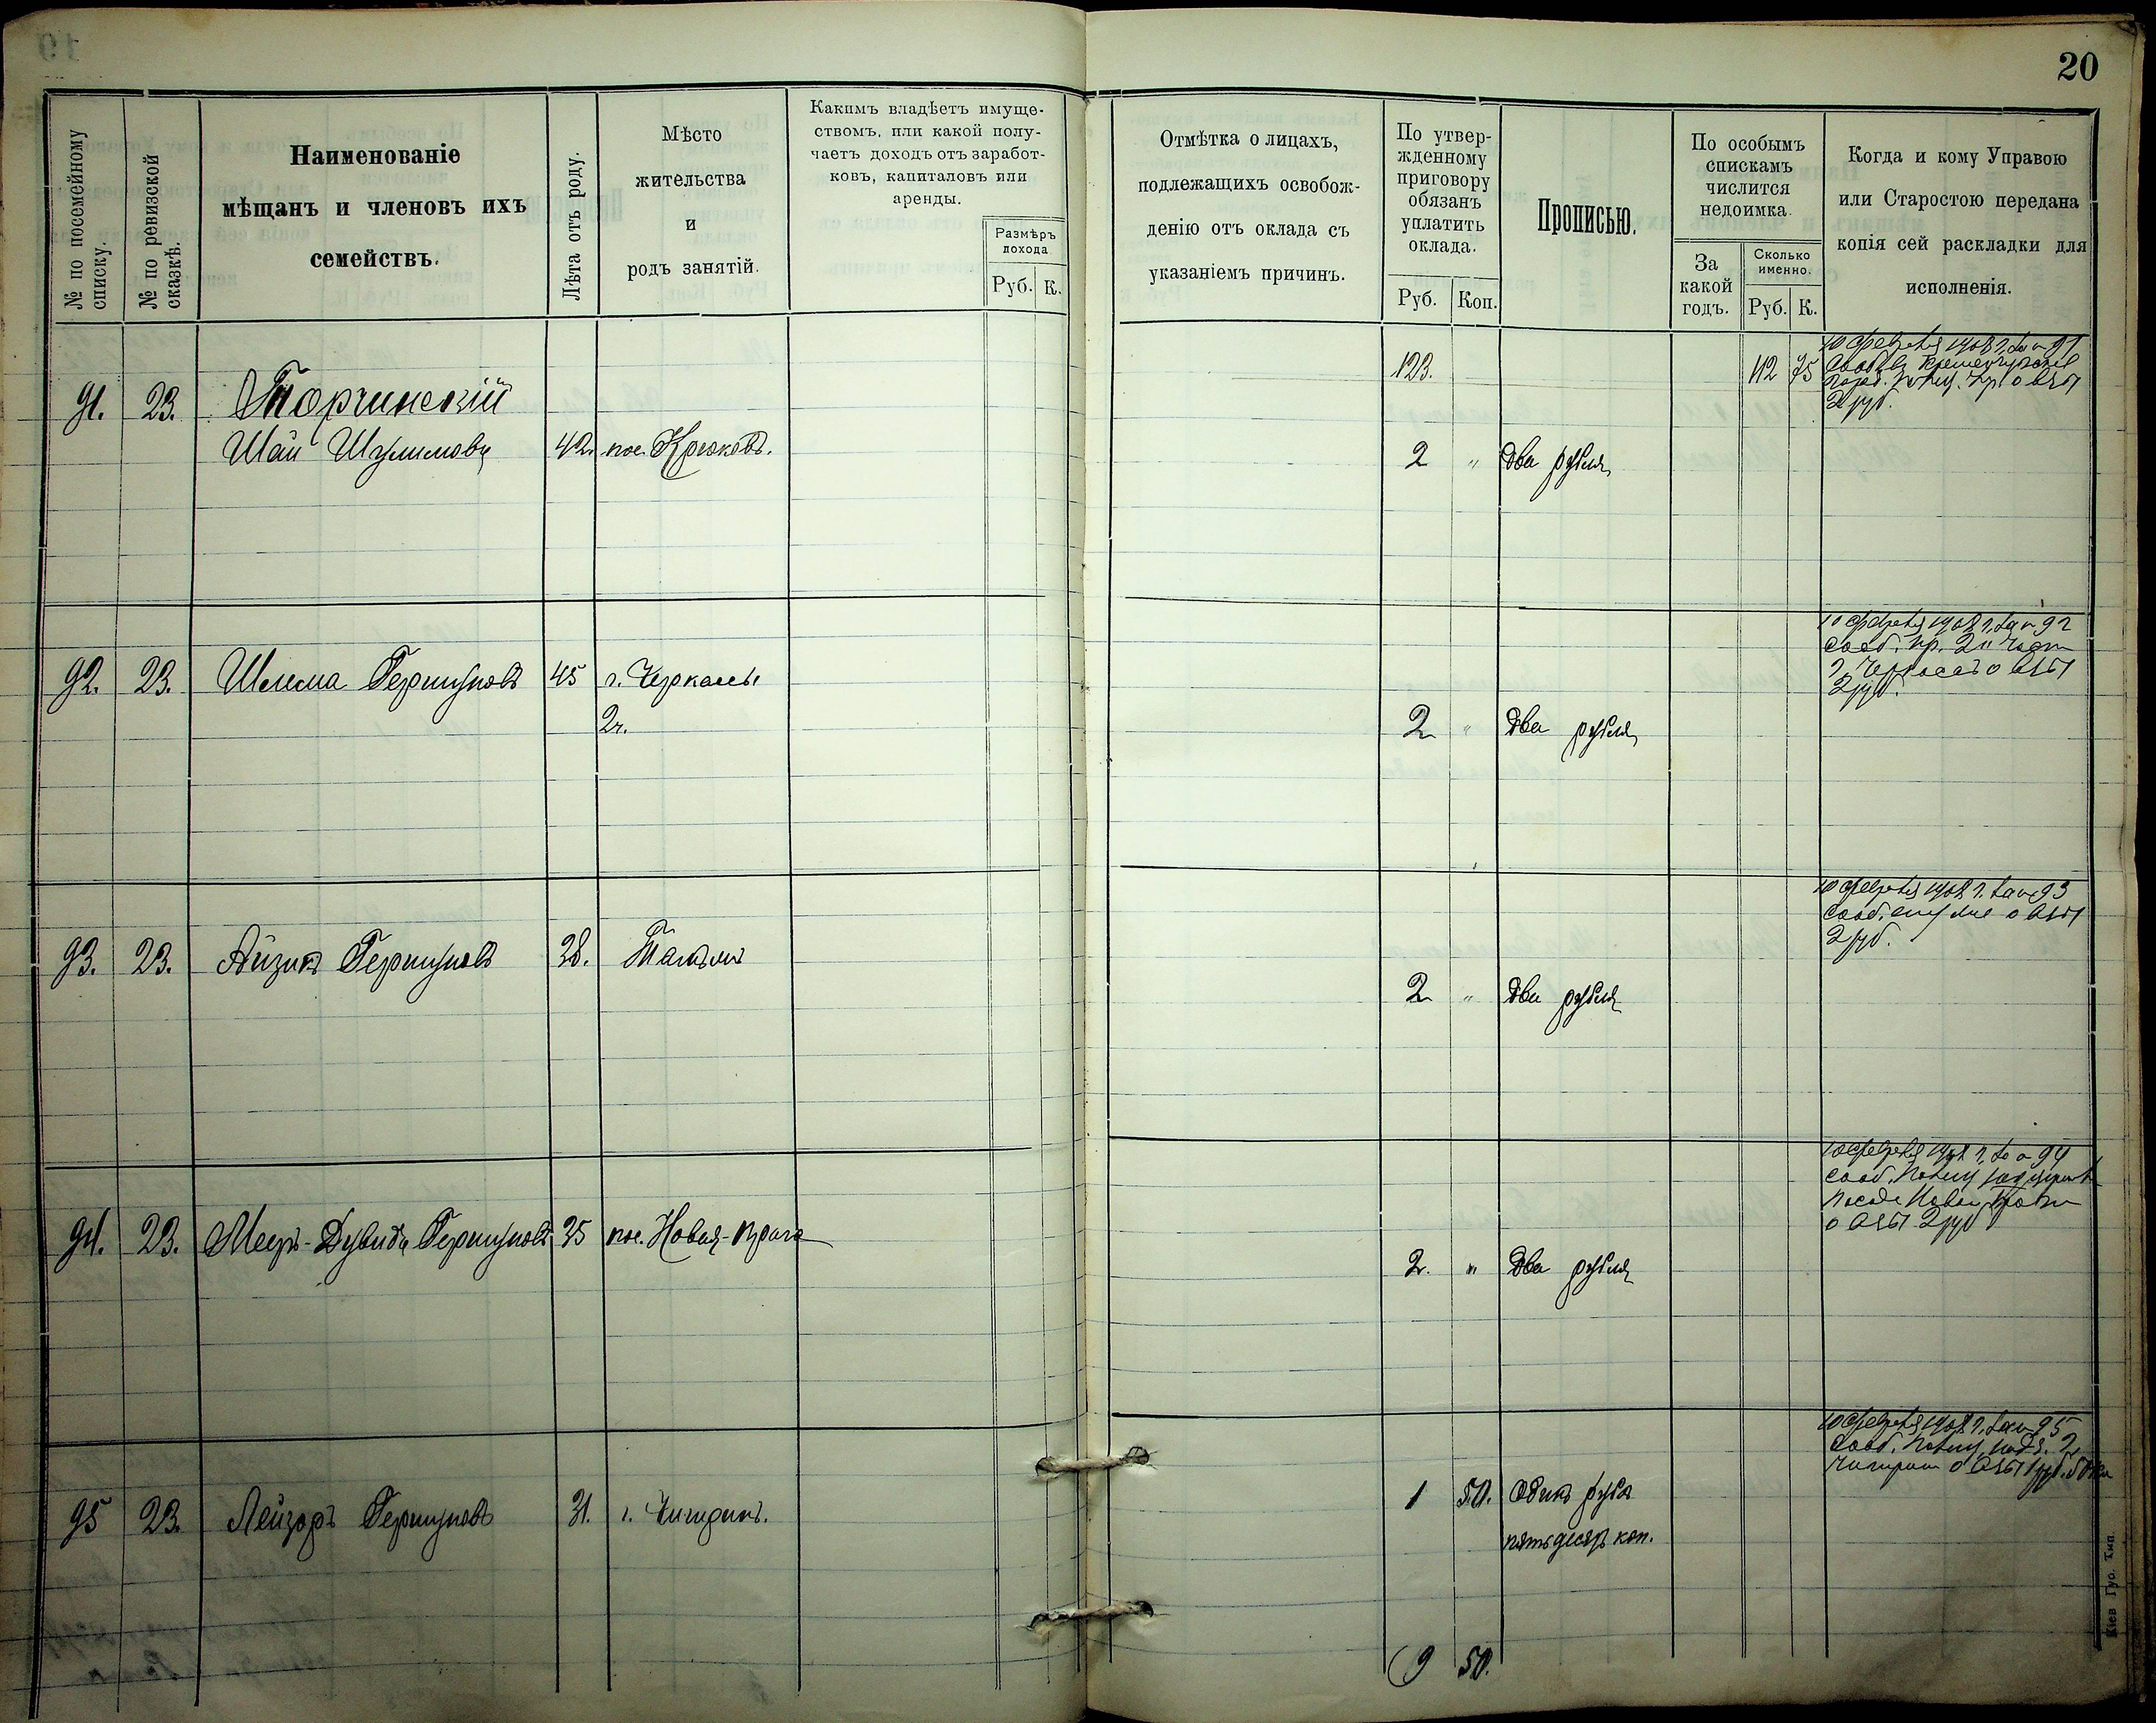 20
№ по посемейному списку.
№ по ревизской сказкѣ.
Наименованіе
мѣщанъ и членовъ ихъ
семействъ.
Лѣта отъ роду.
Мѣсто
жительства
и
родъ занятій.
Какимъ владѣетъ имуще-
ствомъ, или какой полу-
чаетъ доходъ отъ заработ-
ковъ, капиталовъ или
аренды.
Размѣръ
дохода
Руб. К.
Отмѣтка о лицахъ,
подлежащихъ освобож-
денію отъ оклада съ
указаніемъ причинъ.
По утвер-
жденному
приговору
обязанъ
уплатить
оклада.
Руб. Коп.
Прописью.
По особымъ
спискамъ
числится
недоимка.
За
какой
годъ.
Сколько
именно.
Руб. К.
Когда и кому Управою
или Старостою передана
копія сей раскладки для
исполненія.
91. 23. Торчинскій
Шая Шулимовъ 42. пос. Крюковъ.
123. 112 75
2 " Два рубля
10 февраля 1908 г. за № 91
2 руб.
92. 23. Шлема Гершуновъ 45 г. Черкассы
2 ч.
2 " Два рубля
10 февраля 1908 г. за № 92
сооб. пр. 2й части
г. Черкассъ о взы
2 руб.
93. 23. Айзикъ Гершуновъ 38. Тамъ же
2 " Два рубля
10 февраля 1908 г. за № 93
сооб. ему же о взы
2 руб.
94. 23. Меер-Дувидъ Гершуновъ 35 пос. Новая-Прага
2. " Два рубля
10 февраля 1908 г. за № 94
о взы 2 руб
95 23. Лейзоръ Гершуновъ 31. г. Чигиринъ.
1 50. Одинъ рубль
пятьдесятъ коп.
10 февраля 1908 г. за № 95
Чигирин о взы 1 руб. 50 ко
9 50.
Кіев Губ. Тип.